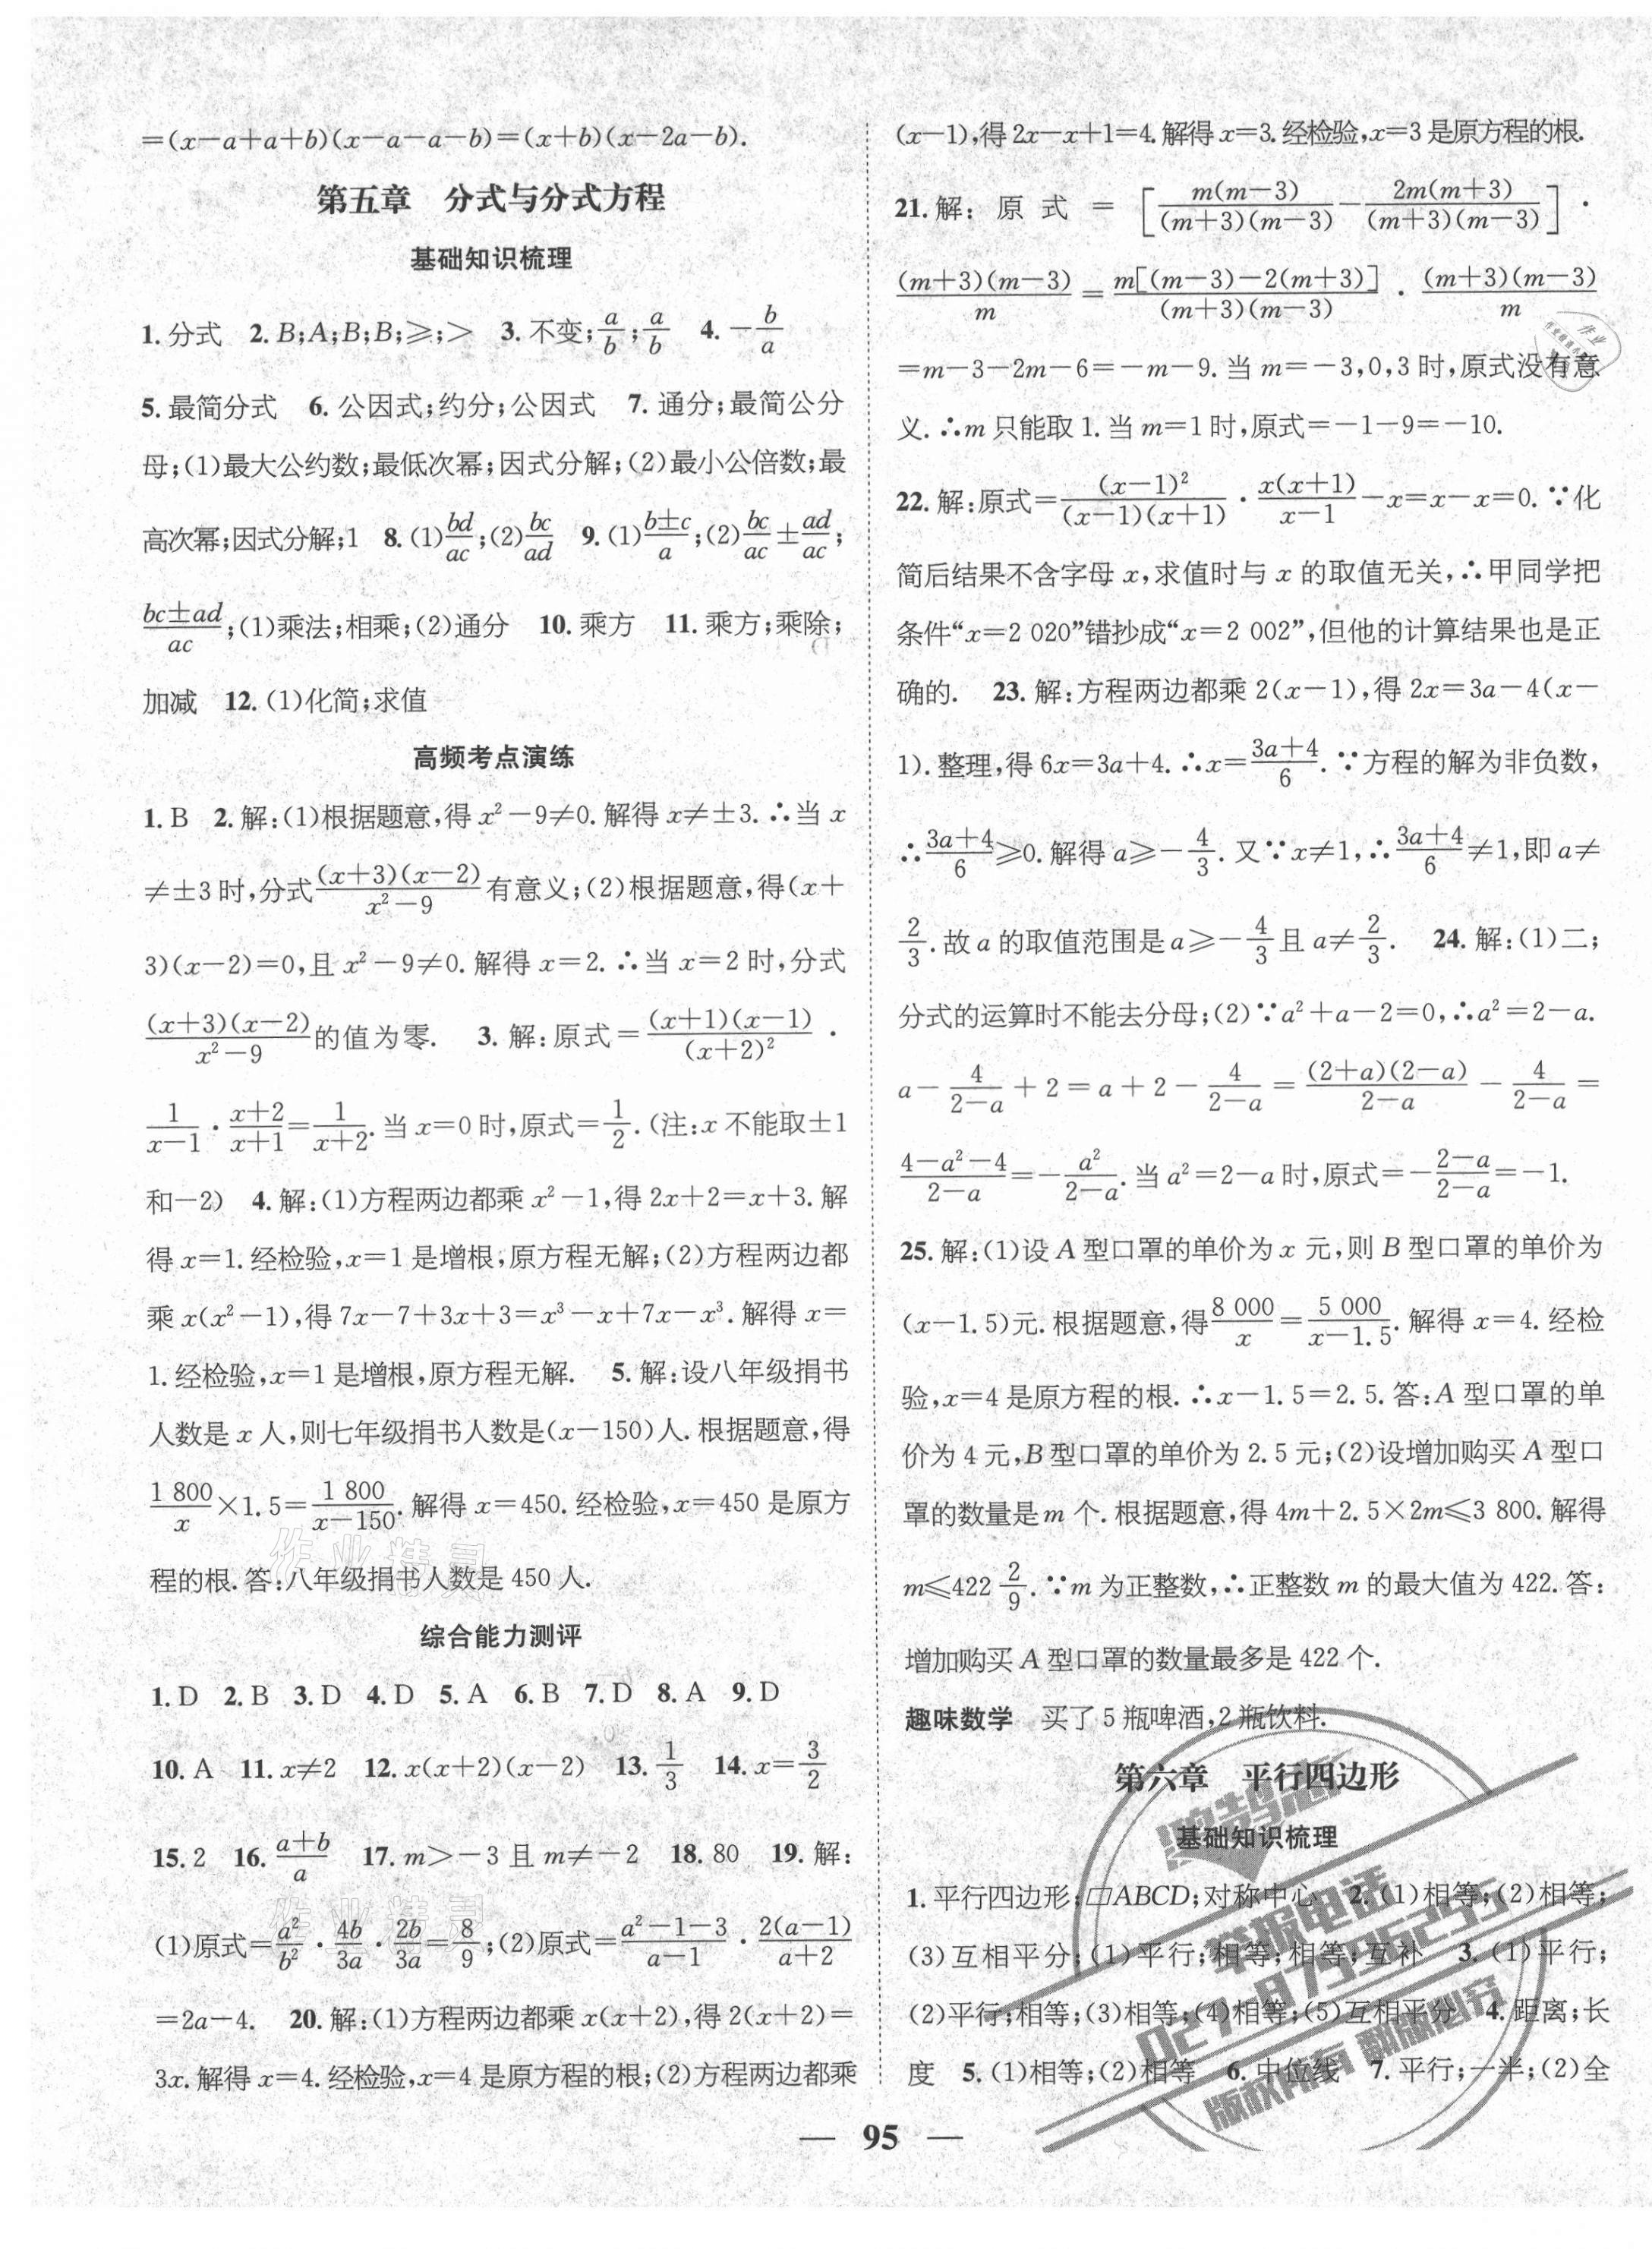 =(x-a+a+b)(x-a-a-b)=(x+b)(x-2a-b).
第五章 分式与分式方程
基础知识梳理
1. 分式 2. B;A;B;B;≥;> 3. 不变;a/b;a/b 4. -b/a
5. 最简分式 6. 公因式;约分;公因式 7. 通分;最简公分
母;(1)最大公约数;最低次幂;因式分解;(2)最小公倍数;最
高次幂;因式分解;1 8. (1)bd/ac;(2)bc/ad 9. (1)(b±c)/a;(2)bc/ac±ad/ac;
(bc±ad)/ac;(1)乘法;相乘;(2)通分 10. 乘方 11. 乘方;乘除;
加减 12. (1)化简;求值
高频考点演练
1. B 2. 解:(1)根据题意,得 x²-9≠0. 解得 x≠±3. ∴当 x
≠±3 时,分式(x+3)(x-2)/(x²-9)有意义;(2)根据题意,得(x+
3)(x-2)=0,且 x²-9≠0. 解得 x=2. ∴当 x=2 时,分式
(x+3)(x-2)/(x²-9)的值为零. 3. 解:原式=(x+1)(x-1)/(x+2)²·
1/(x-1)·(x+2)/(x+1)=1/(x+2). 当 x=0 时,原式=1/2. (注:x 不能取±1
和-2) 4. 解:(1)方程两边都乘 x²-1,得 2x+2=x+3. 解
得 x=1. 经检验,x=1 是增根,原方程无解;(2)方程两边都
乘 x(x²-1),得 7x-7+3x+3=x³-x+7x-x³. 解得 x=
1. 经检验,x=1 是增根,原方程无解. 5. 解:设八年级捐书
人数是 x 人,则七年级捐书人数是(x-150)人. 根据题意,得
1 800/x×1.5=1 800/(x-150). 解得 x=450. 经检验,x=450 是原方
程的根. 答:八年级捐书人数是 450 人.
综合能力测评
1. D 2. B 3. D 4. D 5. A 6. B 7. D 8. A 9. D
10. A 11. x≠2 12. x(x+2)(x-2) 13. 1/3 14. x=3/2
15. 2 16. (a+b)/a 17. m>-3 且 m≠-2 18. 80 19. 解:
(1)原式=a²/b²·4b/3a·2b/3a=8/9;(2)原式=(a²-1-3)/(a-1)·2(a-1)/(a+2)
=2a-4. 20. 解:(1)方程两边都乘 x(x+2),得 2(x+2)=
3x. 解得 x=4. 经检验,x=4 是原方程的根;(2)方程两边都乘
(x-1),得 2x-x+1=4. 解得 x=3. 经检验,x=3 是原方程的根.
21. 解:原式=[m(m-3)/(m+3)(m-3)-2m(m+3)/(m+3)(m-3)]·
(m+3)(m-3)/m=m[(m-3)-2(m+3)]/(m+3)(m-3)·(m+3)(m-3)/m
=m-3-2m-6=-m-9. 当 m=-3,0,3 时,原式没有意
义. ∴m 只能取 1. 当 m=1 时,原式=-1-9=-10.
22. 解:原式=(x-1)²/(x-1)(x+1)·x(x+1)/(x-1)-x=x-x=0. ∵化
简后结果不含字母 x,求值时与 x 的取值无关,∴甲同学把
条件“x=2 020”错抄成“x=2 002”,但他的计算结果也是正
确的. 23. 解:方程两边都乘 2(x-1),得 2x=3a-4(x-
1). 整理,得 6x=3a+4. ∴x=(3a+4)/6. ∵方程的解为非负数,
∴(3a+4)/6≥0. 解得 a≥-4/3. 又∵x≠1,∴(3a+4)/6≠1,即 a≠
2/3. 故 a 的取值范围是 a≥-4/3 且 a≠2/3. 24. 解:(1)二;
分式的运算时不能去分母;(2)∵a²+a-2=0,∴a²=2-a.
a-4/(2-a)+2=a+2-4/(2-a)=(2+a)(2-a)/(2-a)-4/(2-a)=
(4-a²-4)/(2-a)=-a²/(2-a). 当 a²=2-a 时,原式=-(2-a)/(2-a)=-1.
25. 解:(1)设 A 型口罩的单价为 x 元,则 B 型口罩的单价为
(x-1.5)元. 根据题意,得8 000/x=5 000/(x-1.5). 解得 x=4. 经检
验,x=4 是原方程的根. ∴x-1.5=2.5. 答:A 型口罩的单
价为 4 元,B 型口罩的单价为 2.5 元;(2)设增加购买 A 型口
罩的数量是 m 个. 根据题意,得 4m+2.5×2m≤3 800. 解得
m≤422 2/9. ∵m 为正整数,∴正整数 m 的最大值为 422. 答:
增加购买 A 型口罩的数量最多是 422 个.
趣味数学 买了 5 瓶啤酒,2 瓶饮料.
第六章 平行四边形
基础知识梳理
1. 平行四边形;▱ABCD;对称中心 2. (1)相等;(2)相等;
(3)互相平分;(1)平行;相等;相等;互补 3. (1)平行;
(2)平行;相等;(3)相等;(4)相等;(5)互相平分 4. 距离;长
度 5. (1)相等;(2)相等 6. 中位线 7. 平行;一半;(2)全
— 95 —
作业精灵
作业精灵
举报电话
版权所有 翻版必究